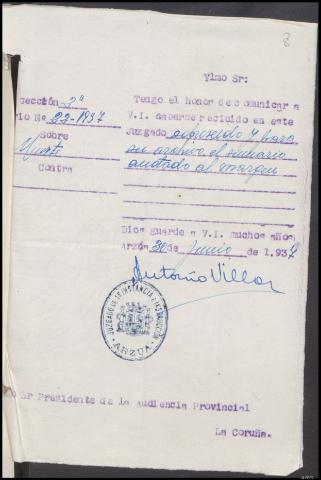 Ylmo Sr:
sección 2ª
rio Nº 22-1937
Sobre
Muerte
Contra
Tengo el honor de comunicar a
V.I. haberse recibido en este
Juzgado expresado y para
su archivo el sumario
anotado al margen
Dios guarde a V.I. muchos años
arzúa 30 de Junio de 1.937
Antonio Villar
JUZGADO DE 1ª INSTANCIA E INSTRUCCIÓN
ARZUA
Sr Presidente de la Audiencia Provincial
La Coruña.